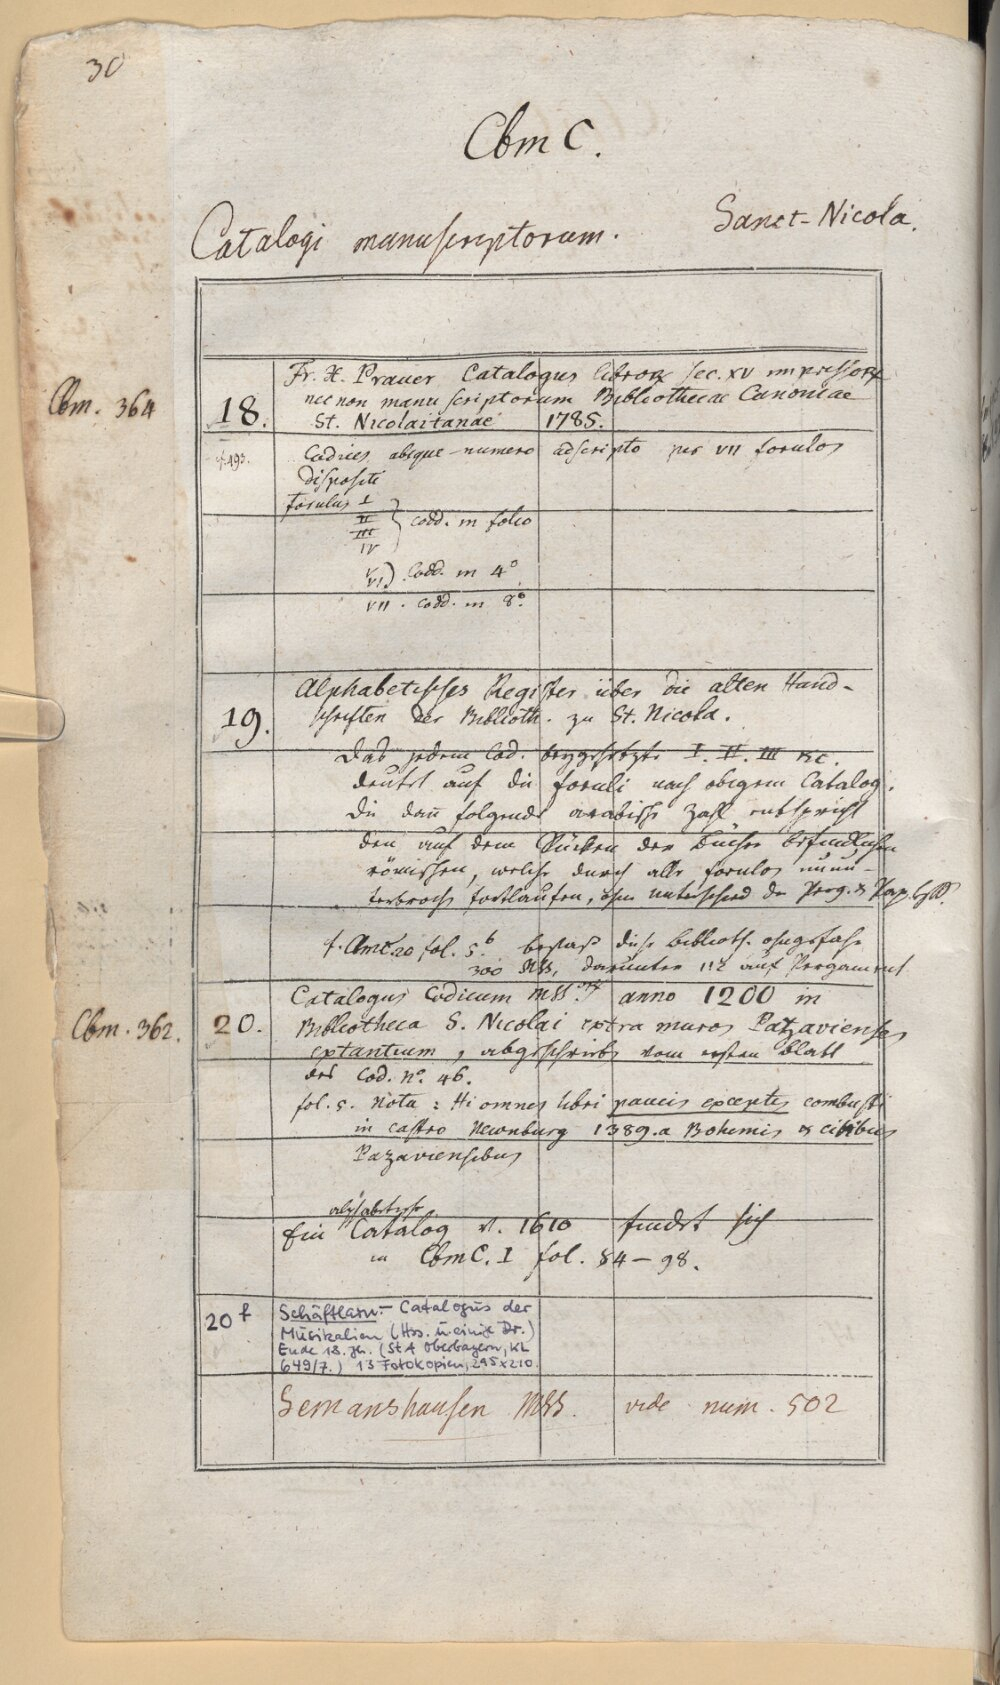 30
Cbm C.
Catalogi manuscriptorum. Sanct-Nicola.
Cbm. 364
18.
Fr. X. Prauer Catalogus libroꝝ sec. XV impressoꝝ
nec non manuscriptorum Bibliothecae Canoniae
St. Nicolaitanae 1785.
f. 493.
Codices absque numero adscripto per VII forulos
dispositi
forulus I
II
III
IV
} codd. in folio
V
VI) Codd. in 4°
VII. codd. in 8°.
19.
Alphabetisches Register über die alten Hand-
schriften der Biblioth. zu St. Nicola.
Das jedem Cod. beygesetzte I. II. III &c.
deutet auf die foruli nach obigem Catalog.
Die dan̄ folgende arabische Zahl entspricht
den auf dem Rücken der Bücher befindlichen
römischen, welche durch alle forulos unun-
terbrochen fortlaufen, ohne unterschied der Perg. & Pap.
f. Cbmc. 20 fol. 5.b besass diese Biblioth. ohngefähr
300 MSS, darunter 112 auf Pergament
Cbm. 362.
20.
Catalogus Codicum MSS. anno 1200 in
Bibliotheca S. Nicolai extra muros Patzavienses
extantium, abgeschrieben vom ersten Blatt
des Cod. n°. 46.
fol. 5. Nota: Hi omnes libri paucis exceptis combusti
in castro Newnburg 1389. a Bohemis & civibus
Pazaviensibus
alphabetischer
Ein Catalog v. 1610 findet sich
in CbmC. I fol. 84-98.
20f
Schäftlarn - Catalogus der
Musikalien (Hss. u. einige Dr.)
Ende 18. Jh. (StA Oberbayern, KL
649/7.) 13 Fotokopien, 295x210.
Semanshausen MSS. vide num. 502